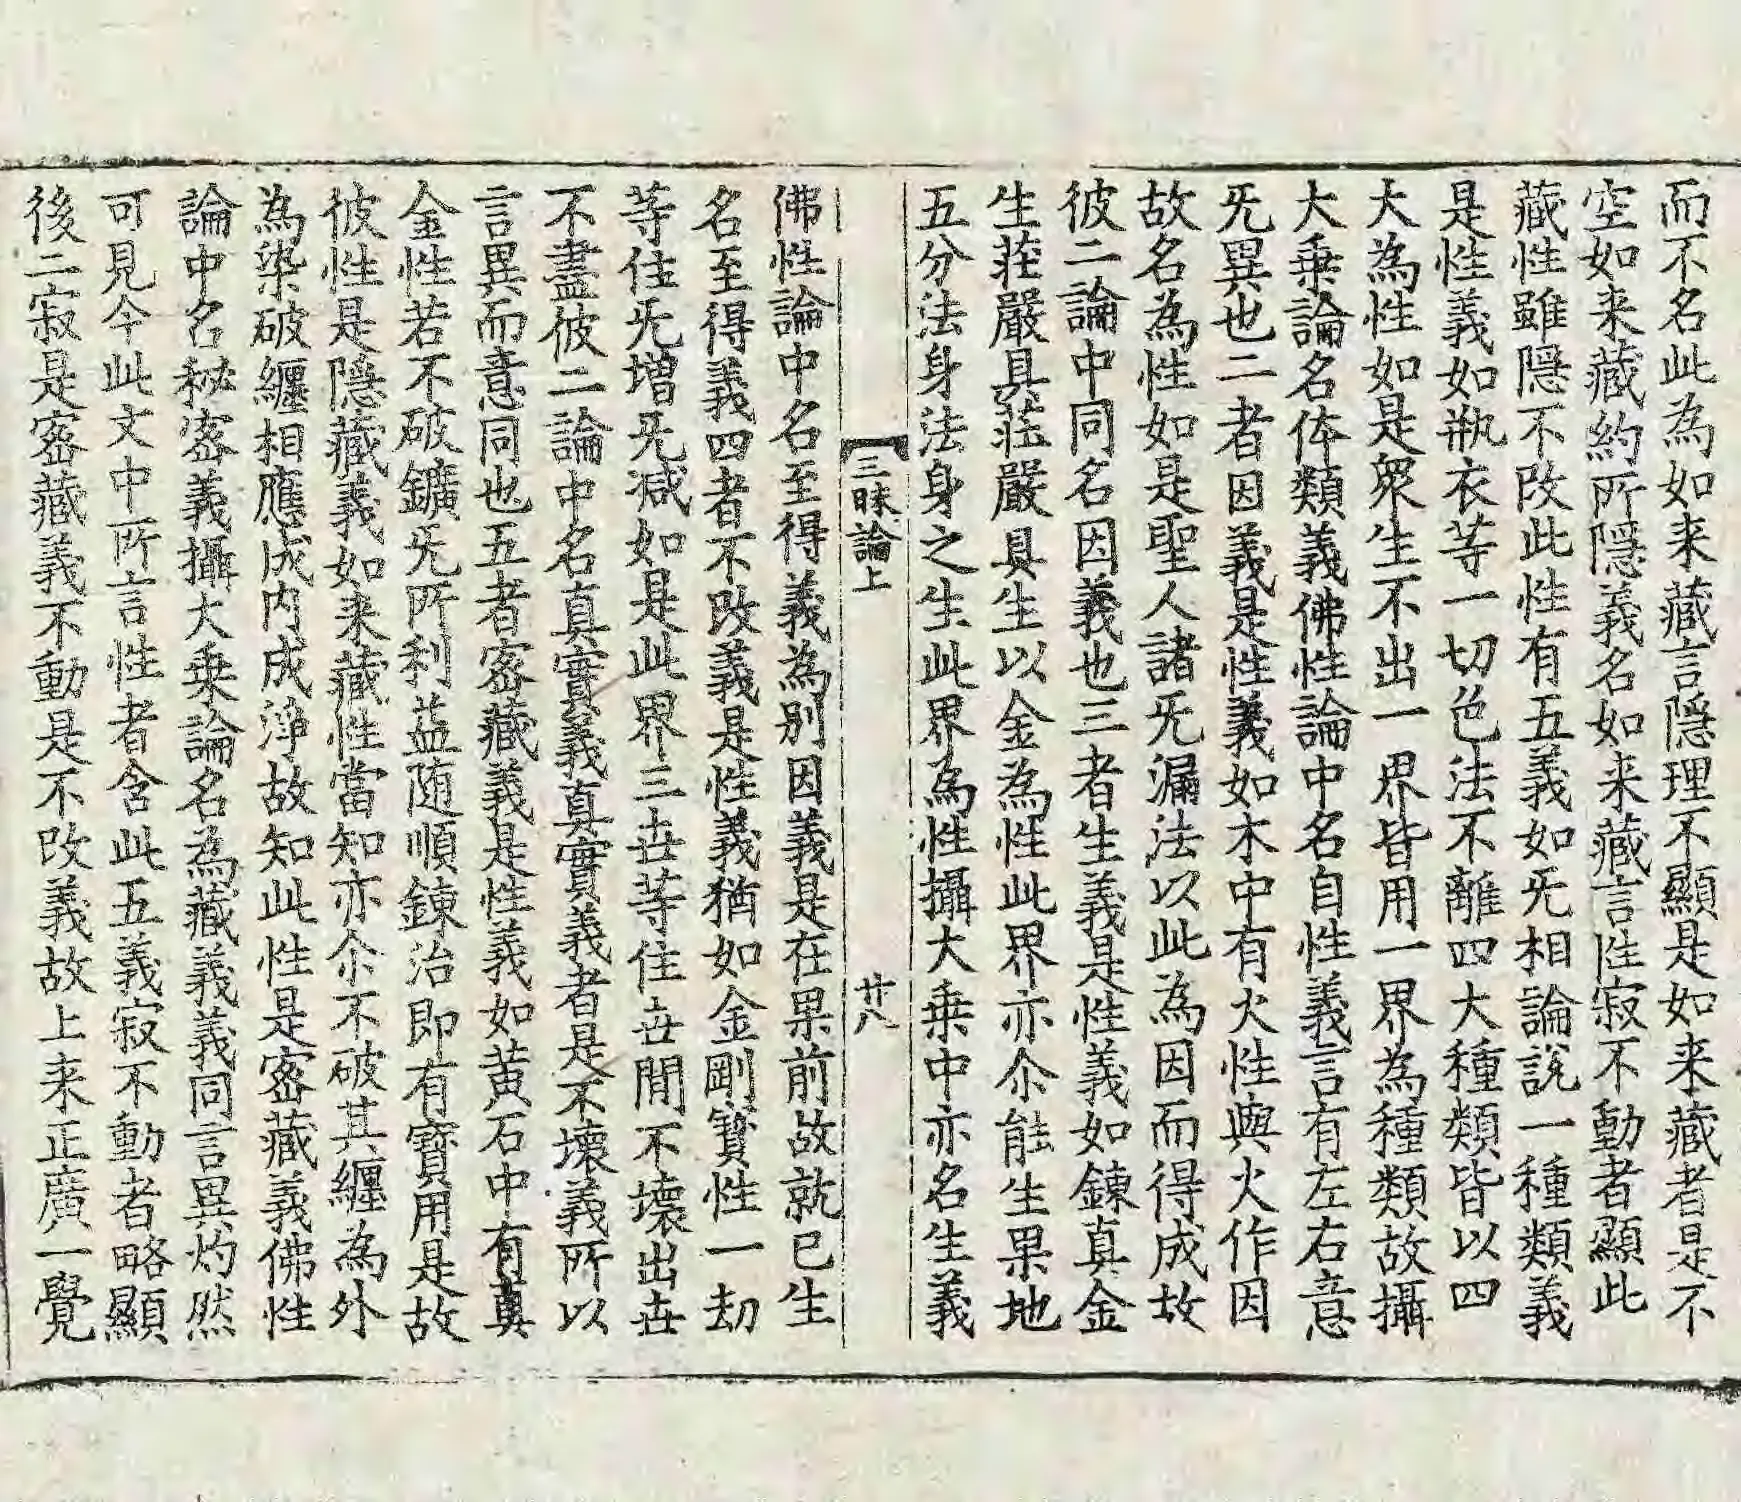 而不名此為如来藏言隱理不顯是如来藏者是不
空如来藏約所隱義名如来藏言性寂不動者顯此
藏性雖隱不改此性有五義如旡相論說一種類義
是性義如瓶衣等一切色法不離四大種類皆以四
大為性如是衆生不出一界皆用一界為種類故攝
大乗論名体類義佛性論中名自性義言有左右意
旡異也二者因義是性義如木中有火性與火作因
故名為性如是聖人諸旡漏法以此為因而得成故
彼二論中同名因義也三者生義是性義如鍊真金
生莊嚴具莊嚴具生以金為性此界亦尒能生果地
五分法身法身之生此界為性攝大乗中亦名生義
三昧論上
廿八
佛性論中名至得義為别因義是在果前故就已生
名至得義四者不改義是性義猶如金剛寳性一劫
等住旡增旡减如是此界三世等住世間不壞出世
不盡彼二論中名真實義真實義者是不壞義所以
言異而意同也五者宻藏義是性義如黄石中有真
金性若不破鑛旡所利益随順鍊治即有寳用是故
彼性是隱藏義如来藏性當知亦尒不破其纏為外
為染破纏相應成内成淨故知此性是宻藏義佛性
論中名秘宻義攝大乗論名為藏義義同言異灼然
可見今此文中所言性者含此五義寂不動者略顯
後二寂是宻藏義不動是不改義故上来正廣一覺